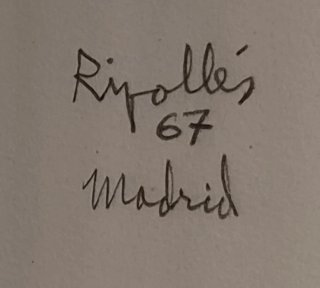 Ripollés
67
Madrid